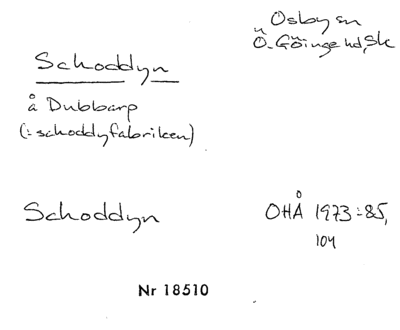 Osby sn
Ö. Göinge hd, Sk
Schoddyn
å Dubbarp
(: schoddyfabriken)
Schoddyn
OHÅ 1973:85,
104
Nr 18510